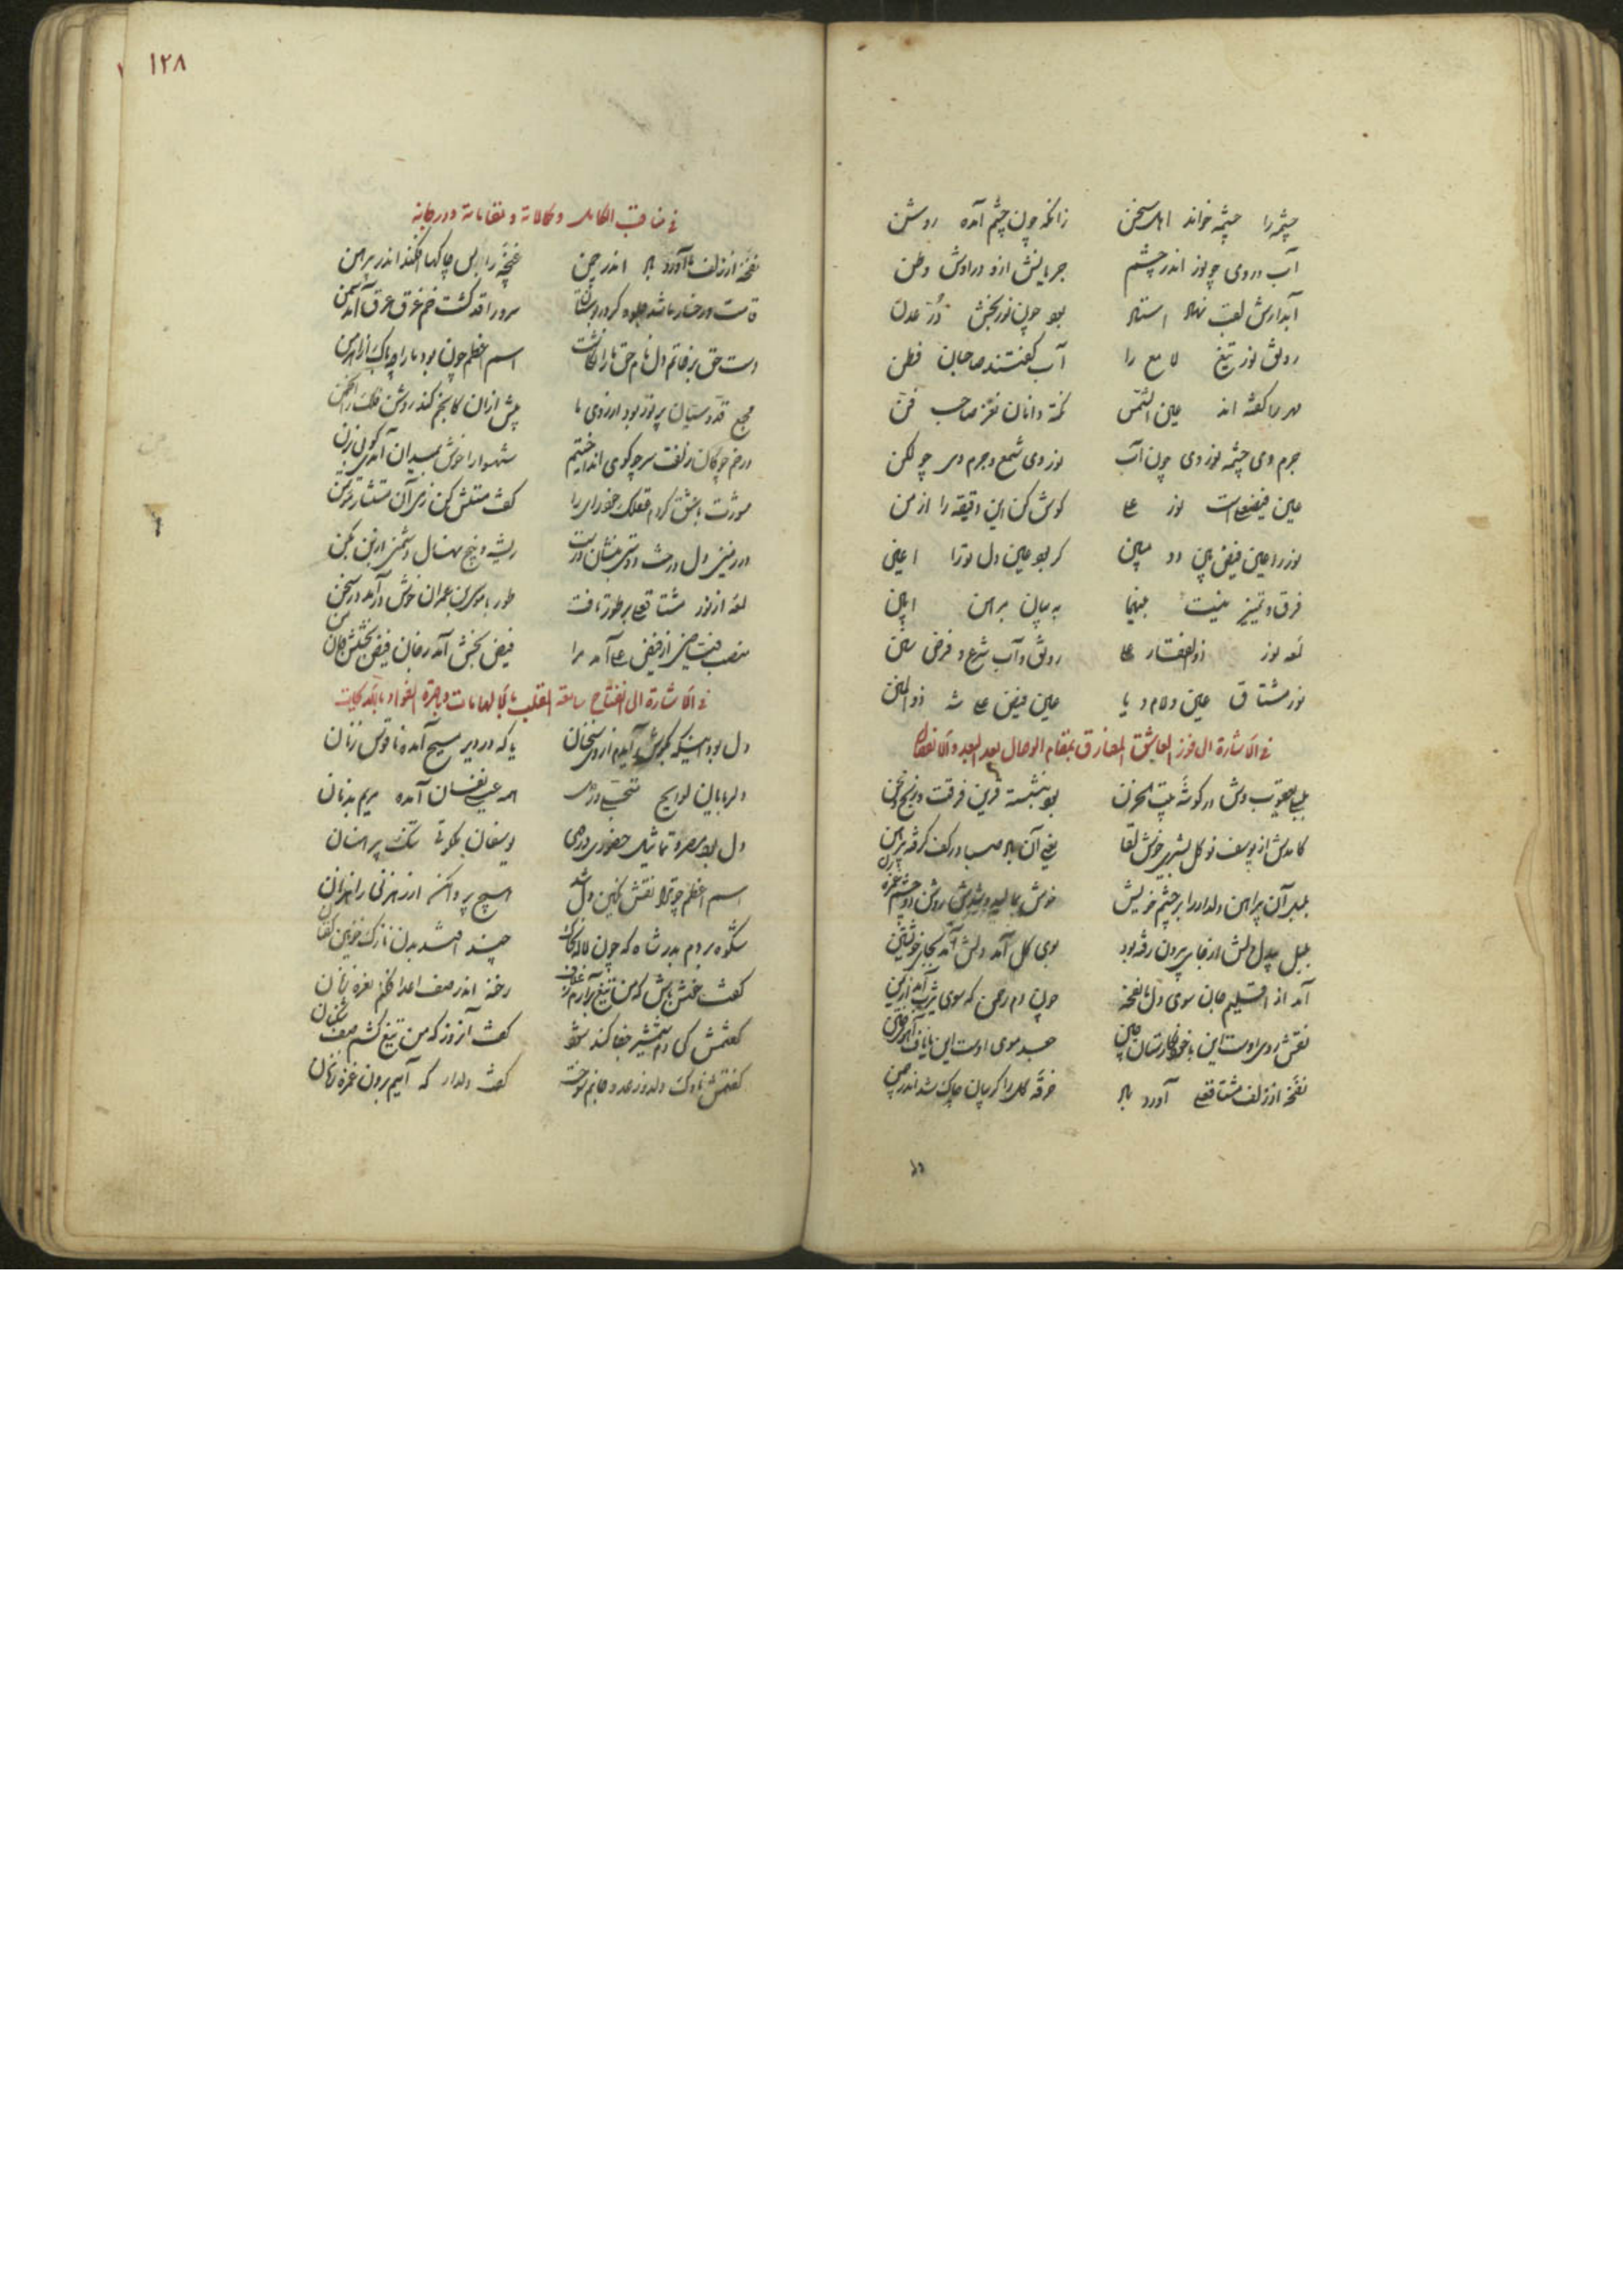 چشمه را چشمه خواند اهل سخن زانکه چون چشم آمده روشن
آب در وی چو نور اندر چشم جریانش ازو در اوش وطن
آبدارش لقب نهاد استاد بود چون نور بخش در عدن
رونق نور تیغ لامع را آب گفتند صاحبان فطن
مهر را گفته اند عین الشمس نکته دانان نغز صاحب فن
جرم وی چشمه نور وی چون آب نور وی شمع و جرم وی چو لکن
عین فیض علی است نور علی گوش کن این دقیقه را از من
نور را عین فیض بین و مبین گر بود عین دل تو را اعین
فرق و تمییز نیست بینهما به بیان براهن ابین
لمعه نور ذوالفقار علی رونق و آب شرع و فرض سنن
نور مشتاق عین و لام و یا عین فیض علی شه ذوالمن
فی الاشارة الی فوز العاشق المفارق بمقام الوصال بعد البعد والانفصال
بلبلی یعقوب وش در گوشه بیت الحزن بود بنشسته قرین فرقت و رنج و محن
کامدش از یوسف نو گل بشیر خوش لقا یعنی آن باد صبا در کف گرفته پیرهن
بلبل آن پیراهن دلدار را بر چشم خویش خوش بمالید و شدش روشن دو چشم
بلبل بیدل دلش از جای بیرون رفته بود بوی گل آمد دلش آمد بجای خویشتن
آمد از اقلیم جان سوی دل ما نفحه چون دم رحمن که سوی یثرب آمد از یمن
نقش روی اوست این یا خود نگارستان چین جعد موی اوست این یا ناف آهوی ختن
نفحه از زلف مشتاق علی آورد باد خرقه گل را گریبان چاک شد اندر چمن
۱۲۸
فی مناقب الکامل و کمالاته و مقاماته و درجاته
نفحه از زلف ما آورد باد اندر چمن غنچه را بس چاکها افکند اندر پیرهن
قامت و رخسار ما شد جلوه گر در بوستان سرو را قد گشت خم غرق عرق آمد سمن
دست حق بر خاتم دل نام حق ما را نگاشت اسم اعظم چون بود ما را چه باک از اهرمن
مجمع قدوسیان پر نور بود از روی ما پیش از آن کانجم کند روشن فلک را انجمن
در خم چوگان زلفت سر چو گوی انداختم شهسوارا خوش بمیدان آمدی گویی بزن
مورثت با عشق کردم عقل گفت
در زمین دل درخت دوستی بنشان درست ریشه و بیخ نهال دشمنی از بن بکن
لمعه از نور مشتاق علی بر طور تافت طور با موسی بن عمران خوش در آمد در سخن
منصب فیض از فیض علی آمد مرا فیض بخش آمد
فی الاشارة الی انفتاح سامعة القلب بالالهامات و باصرة الفؤاد بالملکات
دل بود اینکه بگوش آیدم از وی سخنان یا که در دیر مسیح آمده ناقوس زنان
دلربایان لوایح متجلی در وی همه عیسی نفسان آمده مریم بدنان
دل بود مصر و تماثیل حضوری در وی یوسفان ملکوتی تنک پیرهنان
اسم اعظم چو تو را نقش نگین دل شد هیچ پروا مکن از رهزنی راهزنان
شکوه بردم بدر شاه که چون لاله چند باشد بدن نازک خونین کفنان
گفت خوش باش که من تیغ برآرم ز غلاف رخنه اندر صف اعدا فکنم نعره زنان
گفتمش کی دم شمشیر جفا کند شود گفت آنروز که من تیغ کشم صف شکنان
گفتمش ناوک دلدوز عدو جانم سوخت گفت دلدار که آییم برون غمزه زنان